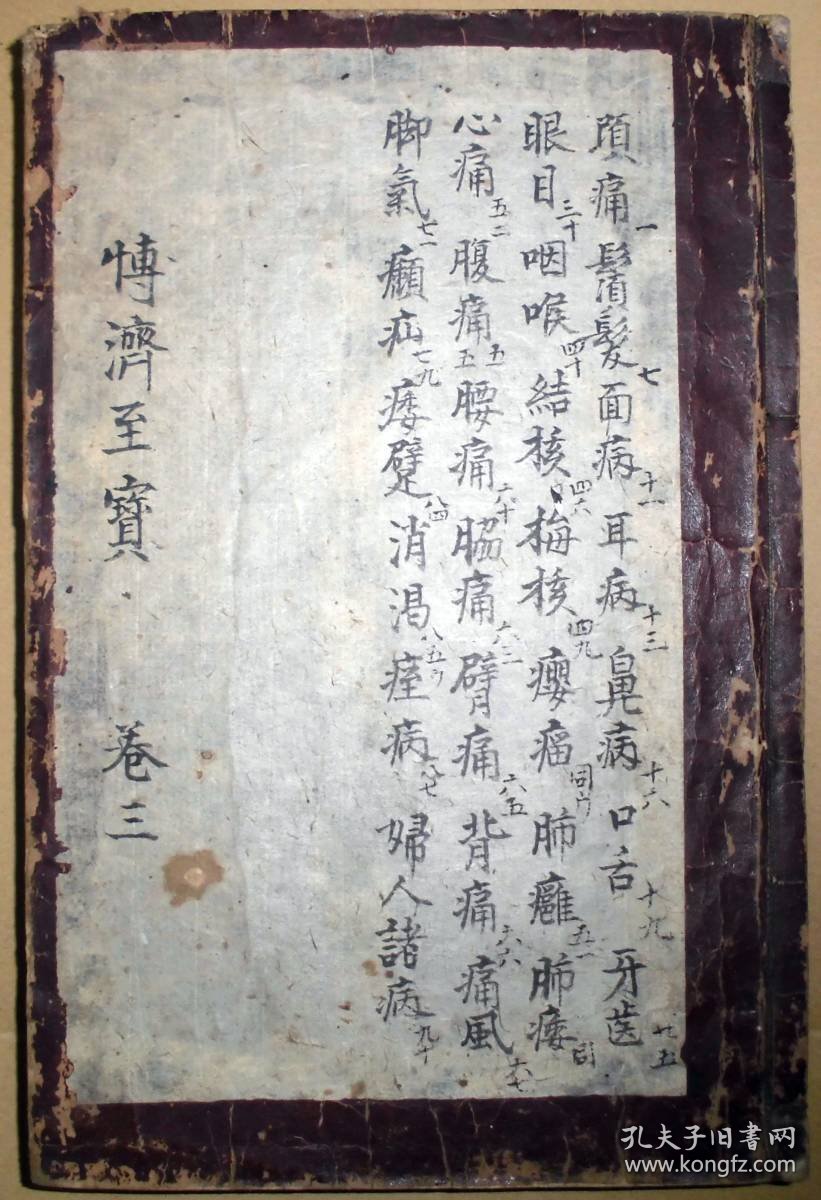 頭痛一鬚髮七面病十一耳病十三鼻病十六口舌十九牙齒廿五
眼目三十咽喉四十結核四六梅核四九癭瘤同ウ肺癰五一肺痿同
心痛五二腹痛五五腰痛六十脇痛六三臂痛六五背痛六六痛風六七
脚氣七一癩疝七九痿躄八四消渴八五ウ痓病八七婦人諸病九十
博濟至寶 卷三
孔夫子旧书网
www.kongfz.com